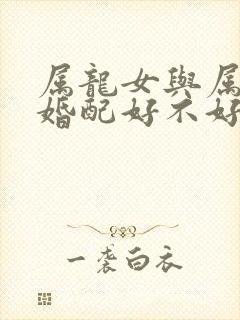 属龍女與属
婚配好不好
一袭白衣